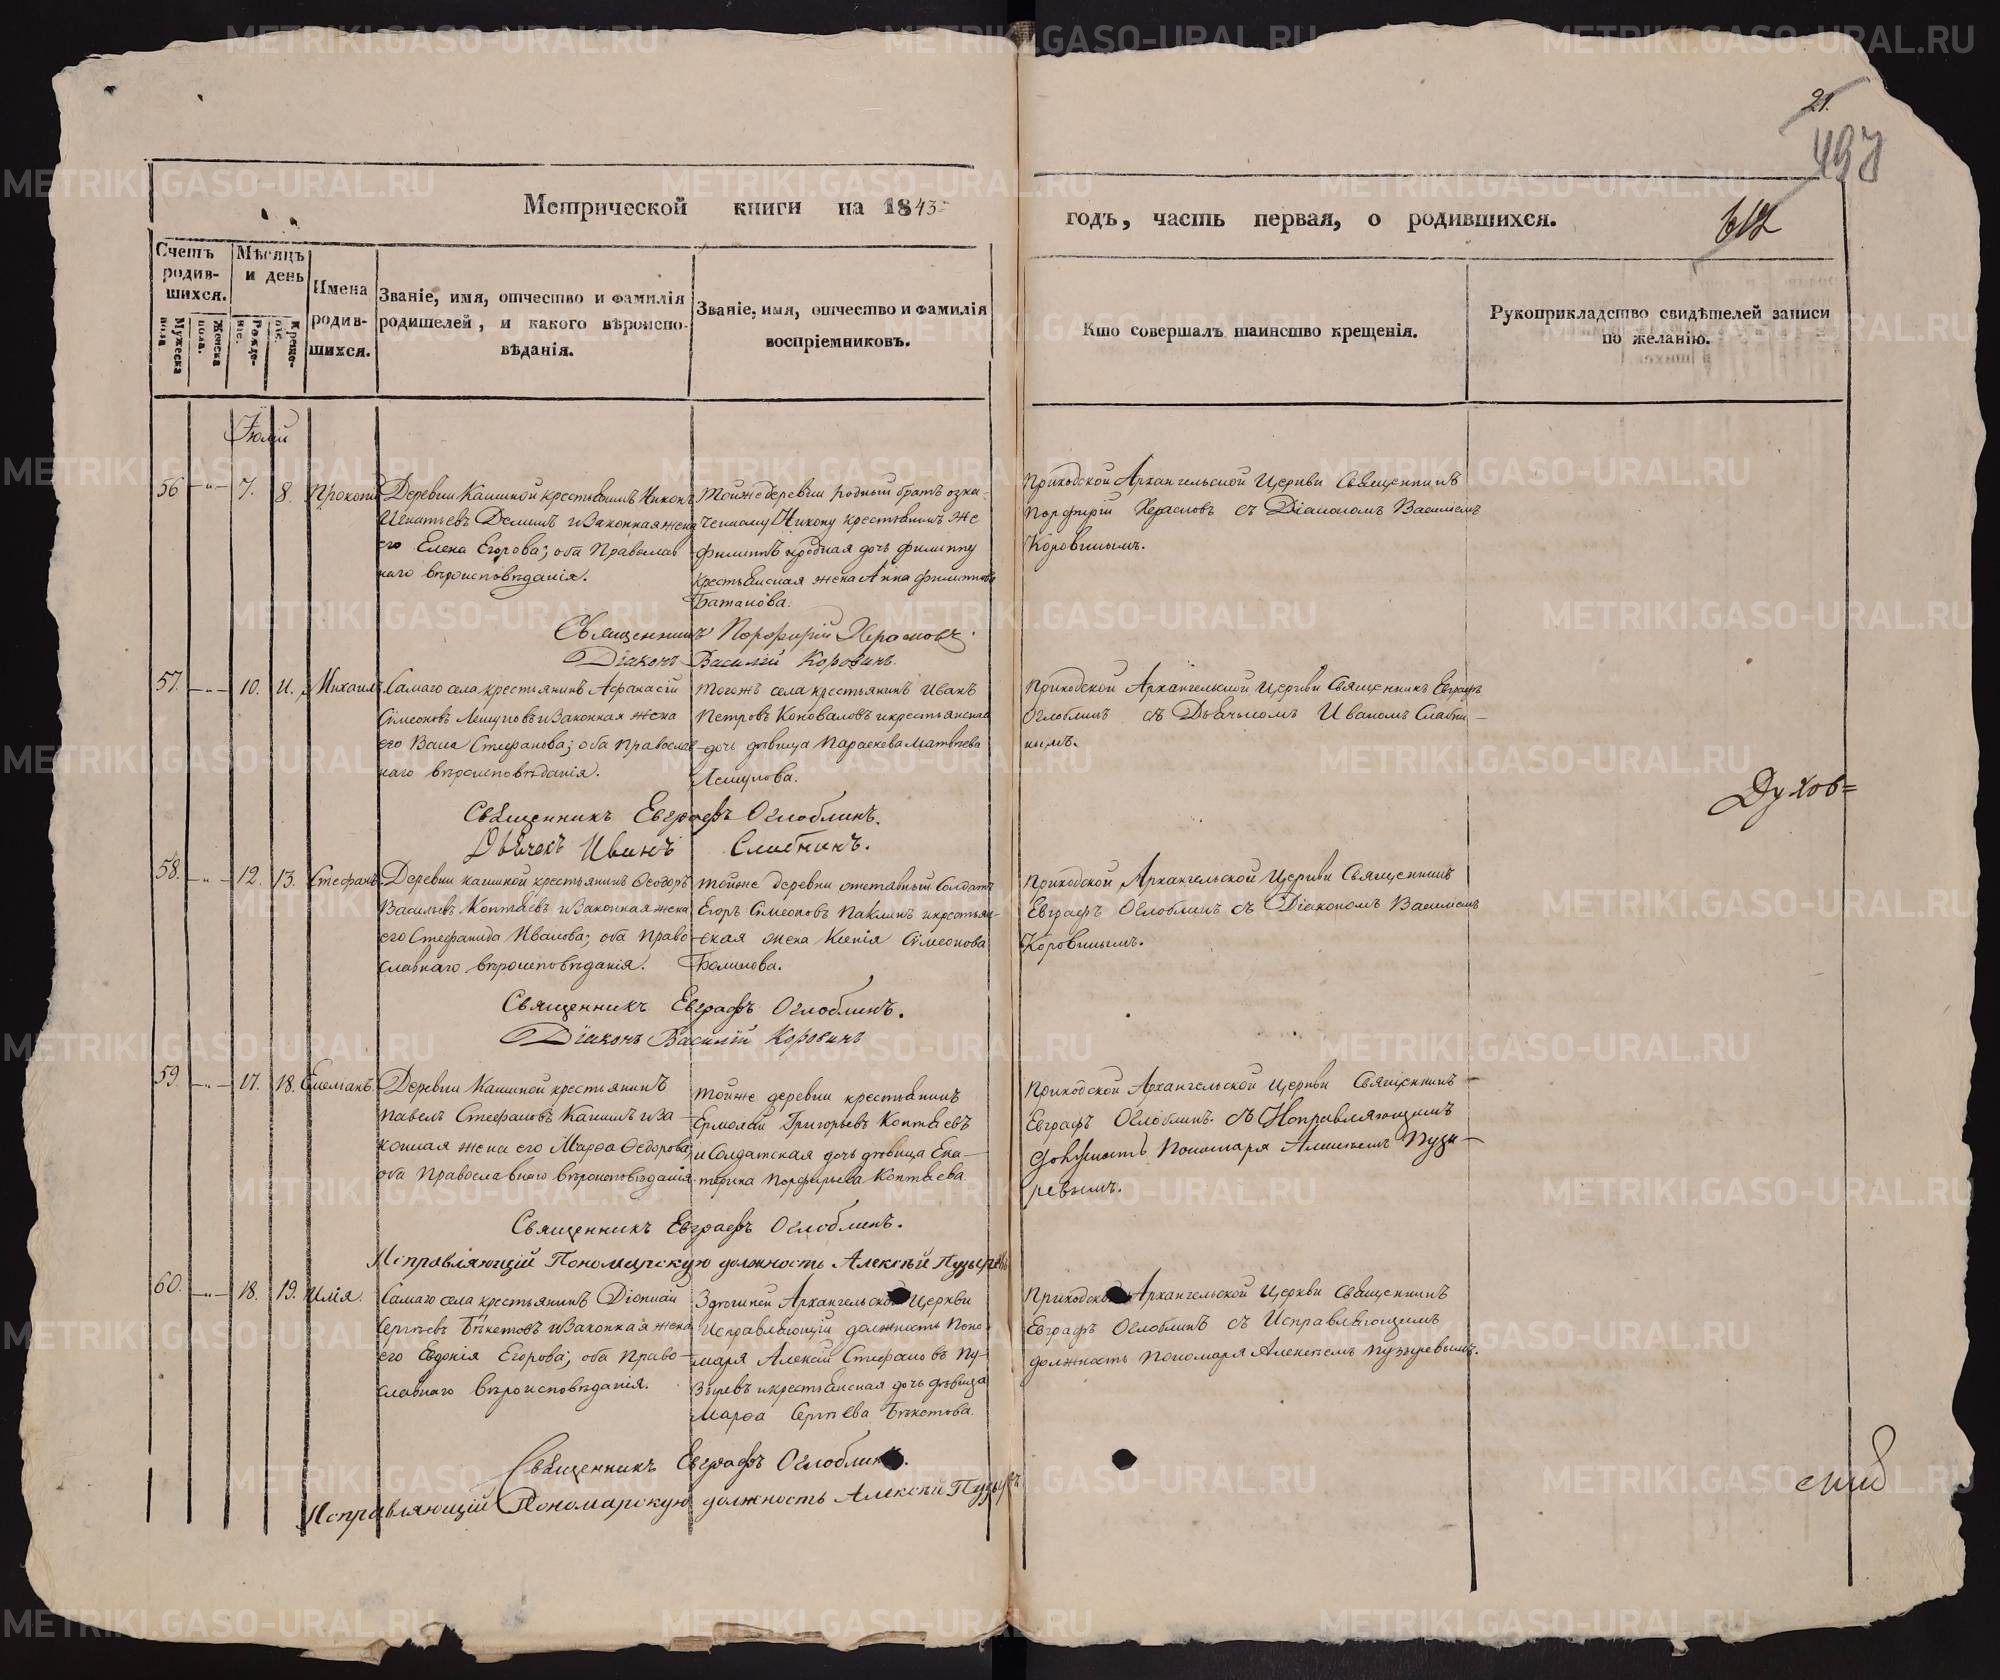 21.
497
612
Метрической книги на 1843
годъ, часть первая, о родившихся.
Счетъ родив-шихся.
Мужеска пола
Женска пола.
Мѣсяцъ и день
Рожде-нія.
Креще-нія.
Имена родив-шихся.
Званіе, имя, отчество и фамилія
родителей, и какого вѣроиспо-
вѣданія.
Званіе, имя, отчество и фамилія
воспріемниковъ.
Кто совершалъ таинство крещенія.
Рукоприкладство свидѣтелей записи
по желанію.
Іюлій
56 — 7. 8. Прокопій
Деревни Кашиной крестьянинъ Никонъ
Игнатьевъ Деминъ и законная жена
его Елена Егорова; оба Православ
наго вѣроисповѣданія.
Тойже деревни родный братъ озна-
ченному Никону крестьянинъ же
Филиппъ и родная дочь Филиппу
крестьянская жена Анна Филиппова
Батанова.
Приходской Архангельской Церкви Священникъ
Порфирій Херасковъ съ Діакономъ Василіемъ
Коровинымъ.
Священникъ Порфирій Херасковъ.
Діаконъ Василій Коровинъ.
57. — 10. 11. Михаилъ
Самаго села крестьянинъ Афанасій
Сімеоновъ Лешуковъ и законная жена
его Васса Стефанова; оба Православ
наго вѣроисповѣданія.
Тогожъ села крестьянинъ Иванъ
Петровъ Коноваловъ и крестьянская
дочь дѣвица Параскева Матвѣева
Приходской Архангельской Церкви Священникъ Евграфъ
Оглоблинъ съ Дьячкомъ Иваномъ Слабни-
нымъ.
Духов=
Священникъ Евграфъ Оглоблинъ.
Дьячекъ Иванъ Слабнинъ.
58. — 12. 13. Стефанъ.
Деревни Кашиной крестьянинъ Ѳеодоръ
Васильевъ Коптяевъ и законная жена
его Стефанида Иванова; оба Право-
славнаго вѣроисповѣданія.
Тойже деревни отставный Солдатъ
Егоръ Сімеоновъ Паклинъ и крестьян-
ская жена Ксенія Сімеонова
Приходской Архангельской Церкви Священникъ
Евграфъ Оглоблинъ съ Діакономъ Василіемъ
Коровинымъ.
Священникъ Евграфъ Оглоблинъ.
Діаконъ Василій Коровинъ
59. — 17. 18. Емеліанъ.
Деревни Кашиной крестьянинъ
Павелъ Стефановъ Кашинъ и за
конная жена его Марѳа Ѳедорова;
оба Православнаго вѣроисповѣданія.
Тойже деревни крестьянинъ
Ермолай Григорьевъ Коптяевъ
и Солдатская дочь дѣвица Ека-
терина Порфирьева Коптяева.
Приходской Архангельской Церкви Священникъ
Евграфъ Оглоблинъ. съ Исправляющимъ
должность Пономаря Алексѣемъ Пузы-
ревымъ.
Священникъ Евграфъ Оглоблинъ.
Исправляющій Пономарскую должность Алексѣй Пузыревъ
60. — 18. 19. Илія.
Самаго села крестьянинъ Діонисій
Сергѣевъ Бекетовъ и законная жена
его Евдокія Егорова; оба Право-
славнаго вѣроисповѣданія.
Здѣшней Архангельской Церкви
Исправляющій должность Поно-
маря Алексѣй Стефановъ Пу-
зыревъ и крестьянская дочь дѣвица
Марѳа Сергѣева Бекетова.
Приходской Архангельской Церкви Священникъ
Евграфъ Оглоблинъ съ Исправляющимъ
должность Пономаря Алексѣемъ Пузыревымъ.
Священникъ Евграфъ Оглоблинъ.
Исправляющій Пономарскую должность Алексѣй Пузыревъ
METRIKI.GASO-URAL.RU